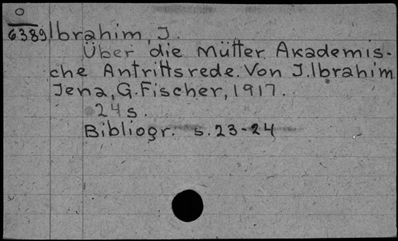 O
6389 Ibrahim, J.
Über die Mütter. Akademis-
che Antrittsrede. Von J. Ibrahim
Jena, G. Fischer, 1917.
24 s.
Bibliogr. s. 23-24